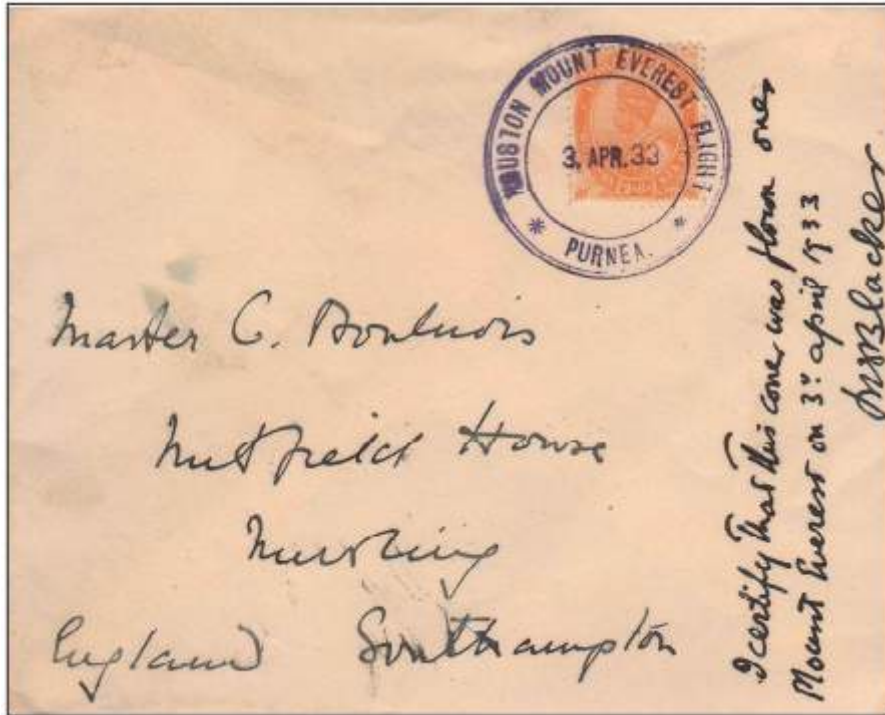 HOUSTON MOUNT EVEREST FLIGHT
3. APR. 33
* PURNEA. *
Master C.
Nutfield House
Nursling
England Southampton
I certify that this cover was flown over
Mount Everest on 3rd april 1933
Blacker